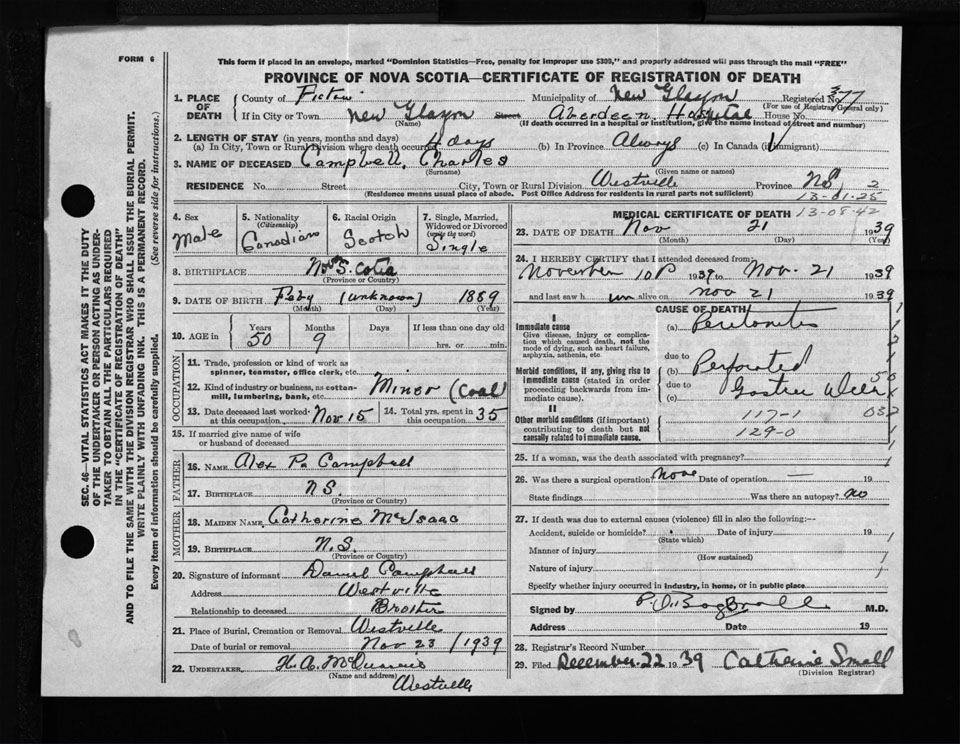 FORM 6
This form if placed in an envelope, marked "Dominion Statistics—Free, penalty for improper use $300," and properly addressed will pass through the mail "FREE"
PROVINCE OF NOVA SCOTIA—CERTIFICATE OF REGISTRATION OF DEATH
1. PLACE OF DEATH County of Pictou Municipality of New Glasgow Registered No. 377
(For use of Registrar General only)
If in City or Town New Glasgow Street Aberdeen Hospital House No.
(Name) (If death occurred in a hospital or institution, give the name instead of street and number)
2. LENGTH OF STAY (in years, months and days)
(a) In City, Town or Rural Division where death occurred days (b) In Province Always (c) In Canada (if immigrant)
3. NAME OF DECEASED Campbell, Charles
(Surname) (Given name or names)
RESIDENCE No. Street City, Town or Rural Division Westville Province NS
(Residence means usual place of abode. Post Office Address for residents in rural parts not sufficient)
2
13-01-25
13-08-42
4. Sex Male
5. Nationality (Citizenship) Canadian
6. Racial Origin Scotch
7. Single, Married, Widowed or Divorced (write the word) Single
8. BIRTHPLACE Nova Scotia
(Province or Country)
9. DATE OF BIRTH Feby (unknown) 1889
(Month) (Day) (Year)
10. AGE in Years 50 Months 9 Days If less than one day old hrs. or min.
OCCUPATION
11. Trade, profession or kind of work as spinner, teamster, office clerk, etc.
12. Kind of industry or business, as cotton-mill, lumbering, bank, etc. Miner (Coal)
13. Date deceased last worked at this occupation Nov 15
14. Total yrs. spent in this occupation 35
15. If married give name of wife or husband of deceased
FATHER
16. NAME Alex Campbell
17. BIRTHPLACE N.S.
(Province or Country)
MOTHER
18. MAIDEN NAME Catherine McIsaac
19. BIRTHPLACE N.S.
(Province or Country)
20. Signature of informant Daniel Campbell
Address Westville
Relationship to deceased Brother
21. Place of Burial, Cremation or Removal Westville
Date of burial or removal Nov 23 / 1939
22. UNDERTAKER
(Name and address)
Westville
MEDICAL CERTIFICATE OF DEATH
23. DATE OF DEATH Nov 21 1939
(Month) (Day) (Year)
24. I HEREBY CERTIFY that I attended deceased from:
November 1939 to Nov. 21 1939
and last saw h im alive on Nov 21 1939
CAUSE OF DEATH
I
Immediate cause
Give disease, injury or complication which caused death, not the mode of dying, such as heart failure, asphyxia, asthenia, etc.
(a) Peritonitis
due to
Morbid conditions, if any, giving rise to immediate cause (stated in order proceeding backwards from immediate cause).
(b) Perforated
due to
(c) Gastric Ulcer
II
Other morbid conditions (if important) contributing to death but not causally related to immediate cause.
117-1
129-0
25. If a woman, was the death associated with pregnancy?
26. Was there a surgical operation? None Date of operation — 19
State findings Was there an autopsy? no
27. If death was due to external causes (violence) fill in also the following:—
Accident, suicide or homicide? Date of injury 19
(State which)
Manner of injury
(How sustained)
Nature of injury
Specify whether injury occurred in industry, in home, or in public place
Signed by M.D.
Address Date 19
28. Registrar's Record Number
29. Filed December 22 1939 Catherine Small
(Division Registrar)
SEC. 46—VITAL STATISTICS ACT MAKES IT THE DUTY
OF THE UNDERTAKER OR PERSON ACTING AS UNDER-
TAKER TO OBTAIN ALL THE PARTICULARS REQUIRED
IN THE "CERTIFICATE OF REGISTRATION OF DEATH"
AND TO FILE THE SAME WITH THE DIVISION REGISTRAR WHO SHALL ISSUE THE BURIAL PERMIT.
WRITE PLAINLY WITH UNFADING INK. THIS IS A PERMANENT RECORD.
Every item of information should be carefully supplied. (See reverse side for instructions.)